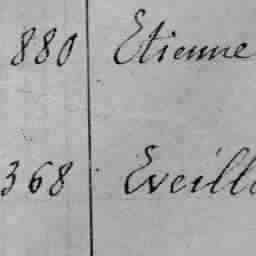 880 Etienne
368 Eveill